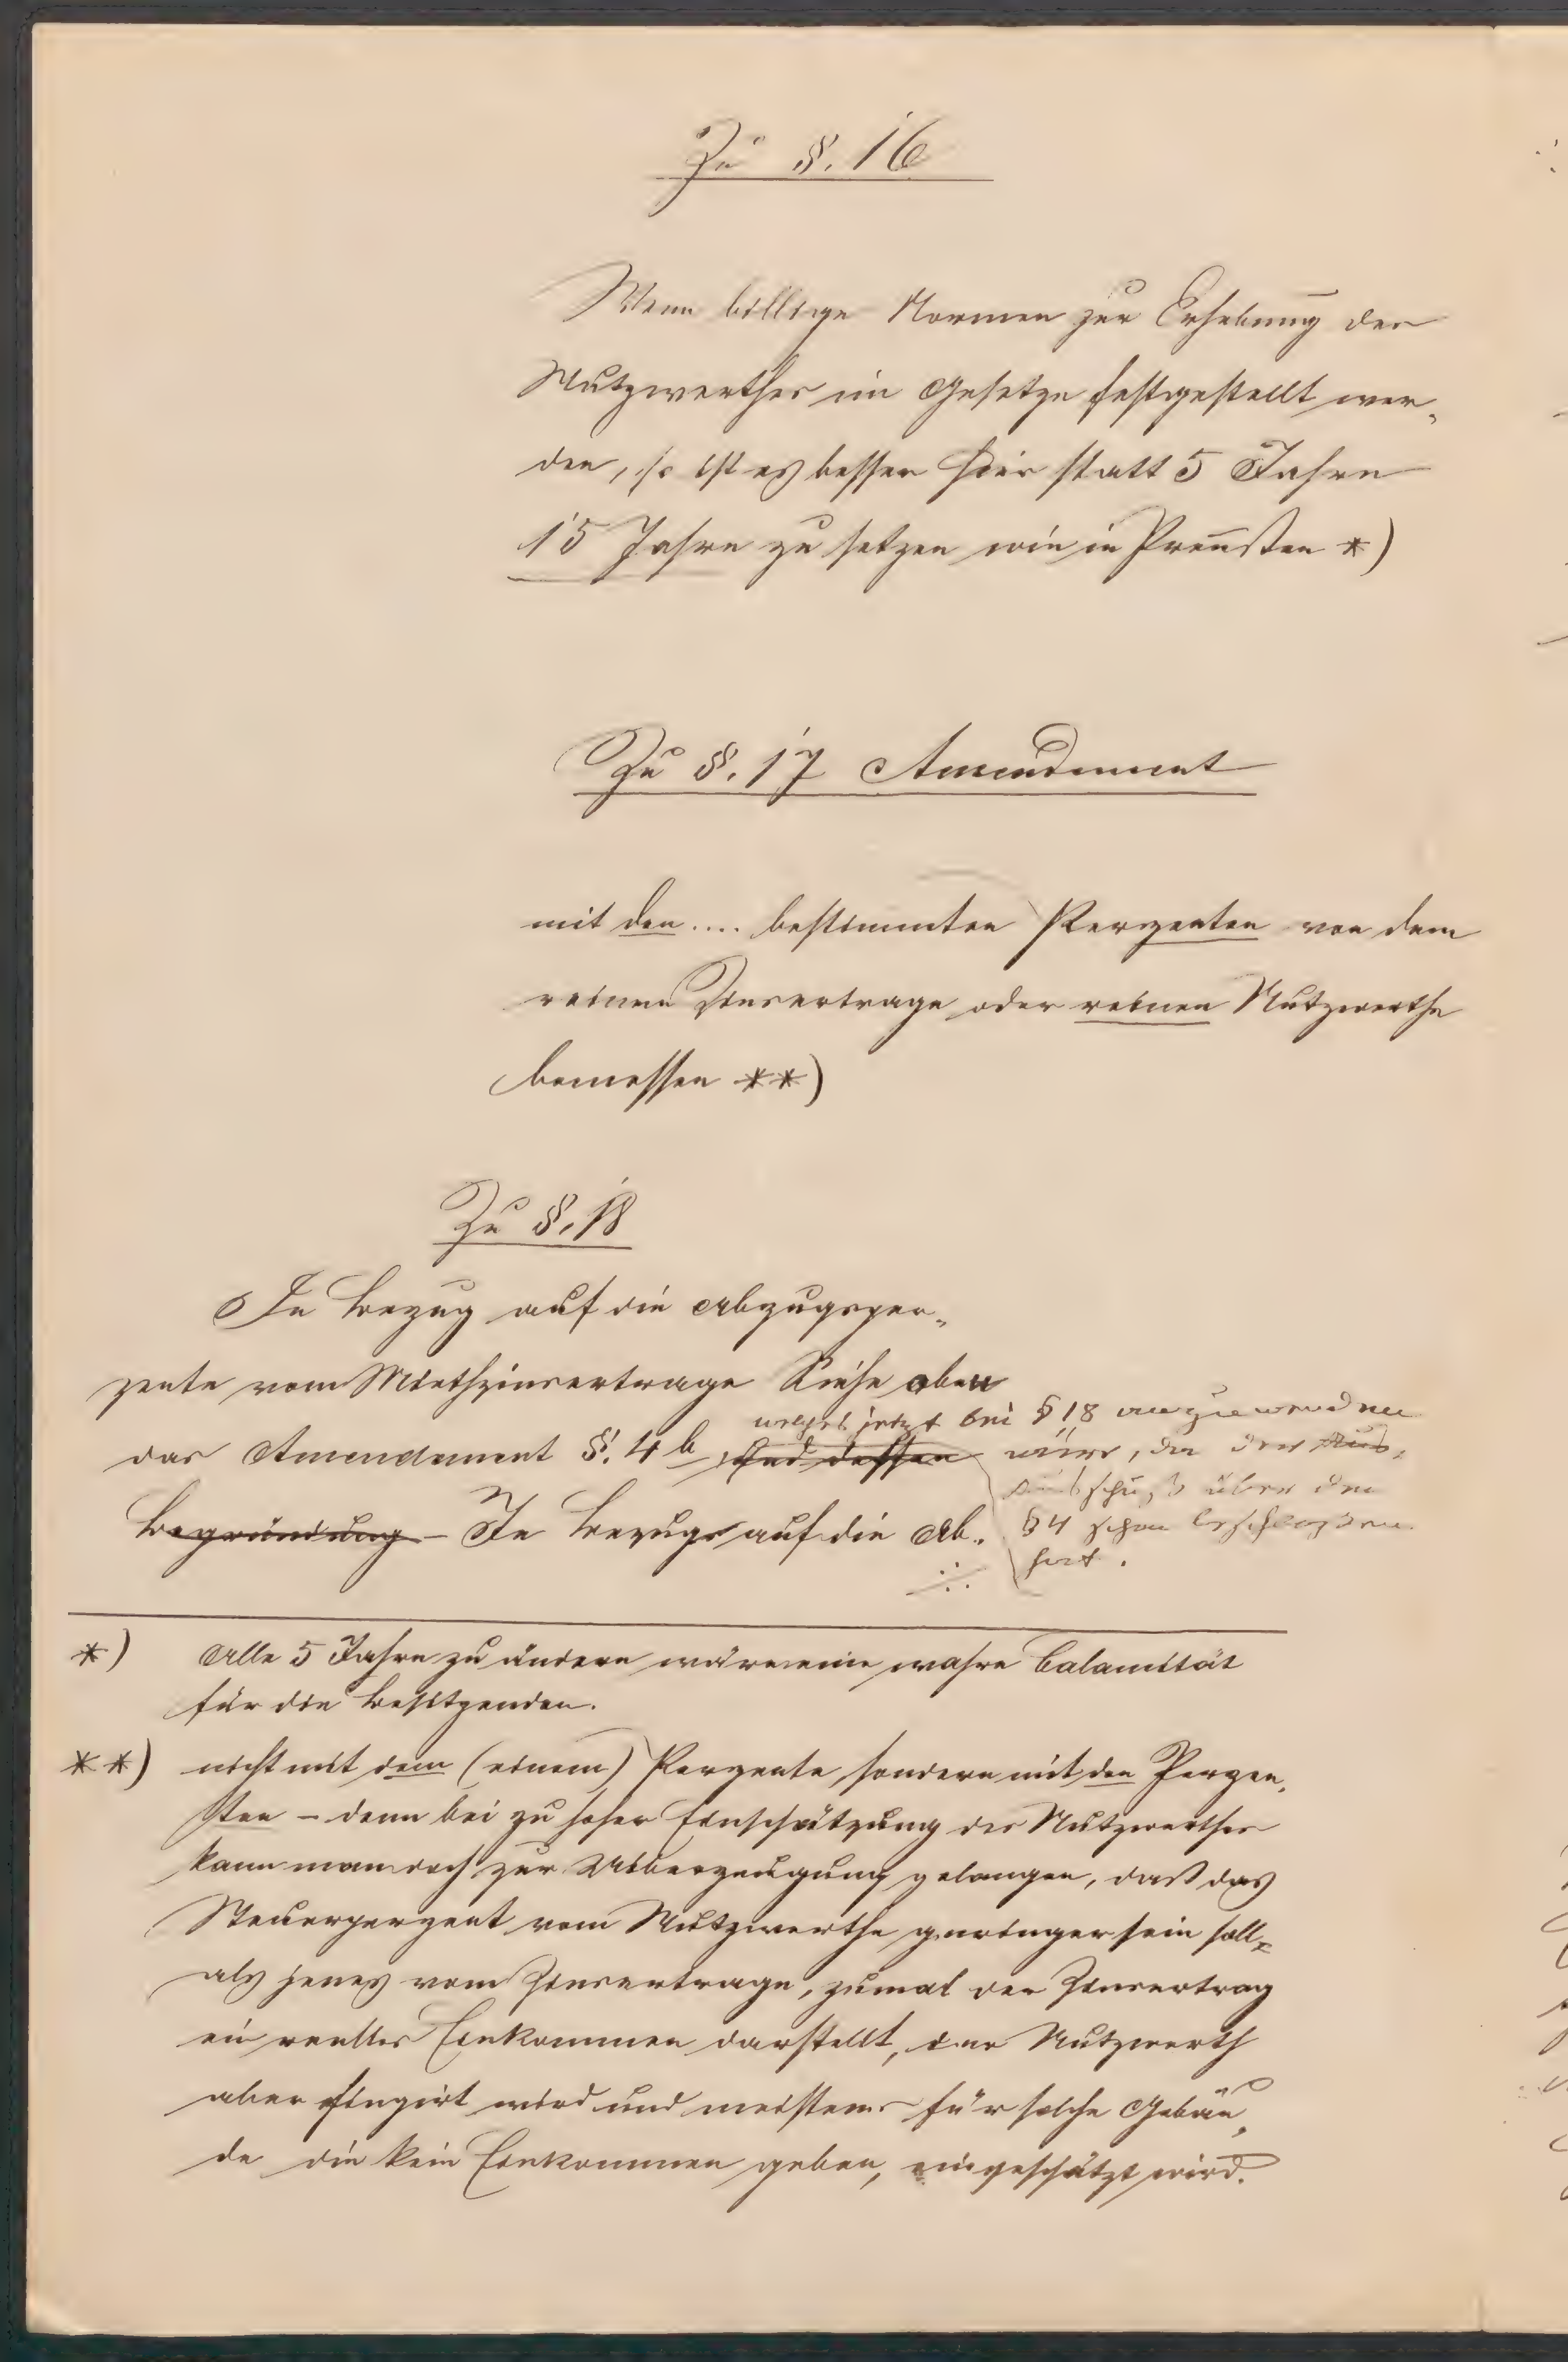 Zu §. 16
Wenn billige Normen zur Erhebung des
Nutzwerthes im Gesetze festgestellt wer„
den, so ist es besser hier statt 5 Jahre
15 Jahre zu setzen wie in Preußen *)
Zu §. 17 Amendement
mit den .... bestimmten Perzenten von dem
reinen Zinsertrage oder reinen Nutzwerthe
bemessen **)
Zu §. 18
In Bezug auf die Abzugsper„
zente vom Miethzinsertrage Siehe oben
das Amendement §. 4 b und dessen
Begründung – In Bezug auf die Ab„
welches jetzt bei § 18 anzuwenden
wäre, da der Aus„
Ausschuß über den
§ 4 schon beschloßen
hat.
*) Alle 5 Jahre zu ändern wäre eine wahre Calamität
für die Besitzenden.
**) nicht mit dem (einem) Perzente, sondern mit den Perzen„
ten – denn bei zu hoher Einschätzung des Nutzwerthes
kann man doch zur Uiberzeugung gelangen, daß das
Steuerperzent vom Nutzwerthe geringer sein soll,
als jenes vom Zinsertrage, zumal der Zinsertrag
ein reelles Einkommen darstellt, der Nutzwerth
aber fingirt wird und meistens für solche Gebäu„
de die kein Einkommen geben, eingeschätzt wird.